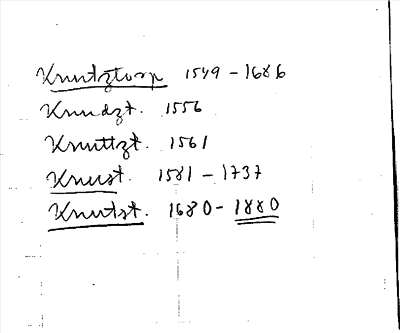 Knutztorp 1549-1686
Knudzt. 1556
Knuttzt. 1561
Knust. 1581-1737
Knutst. 1680-1880